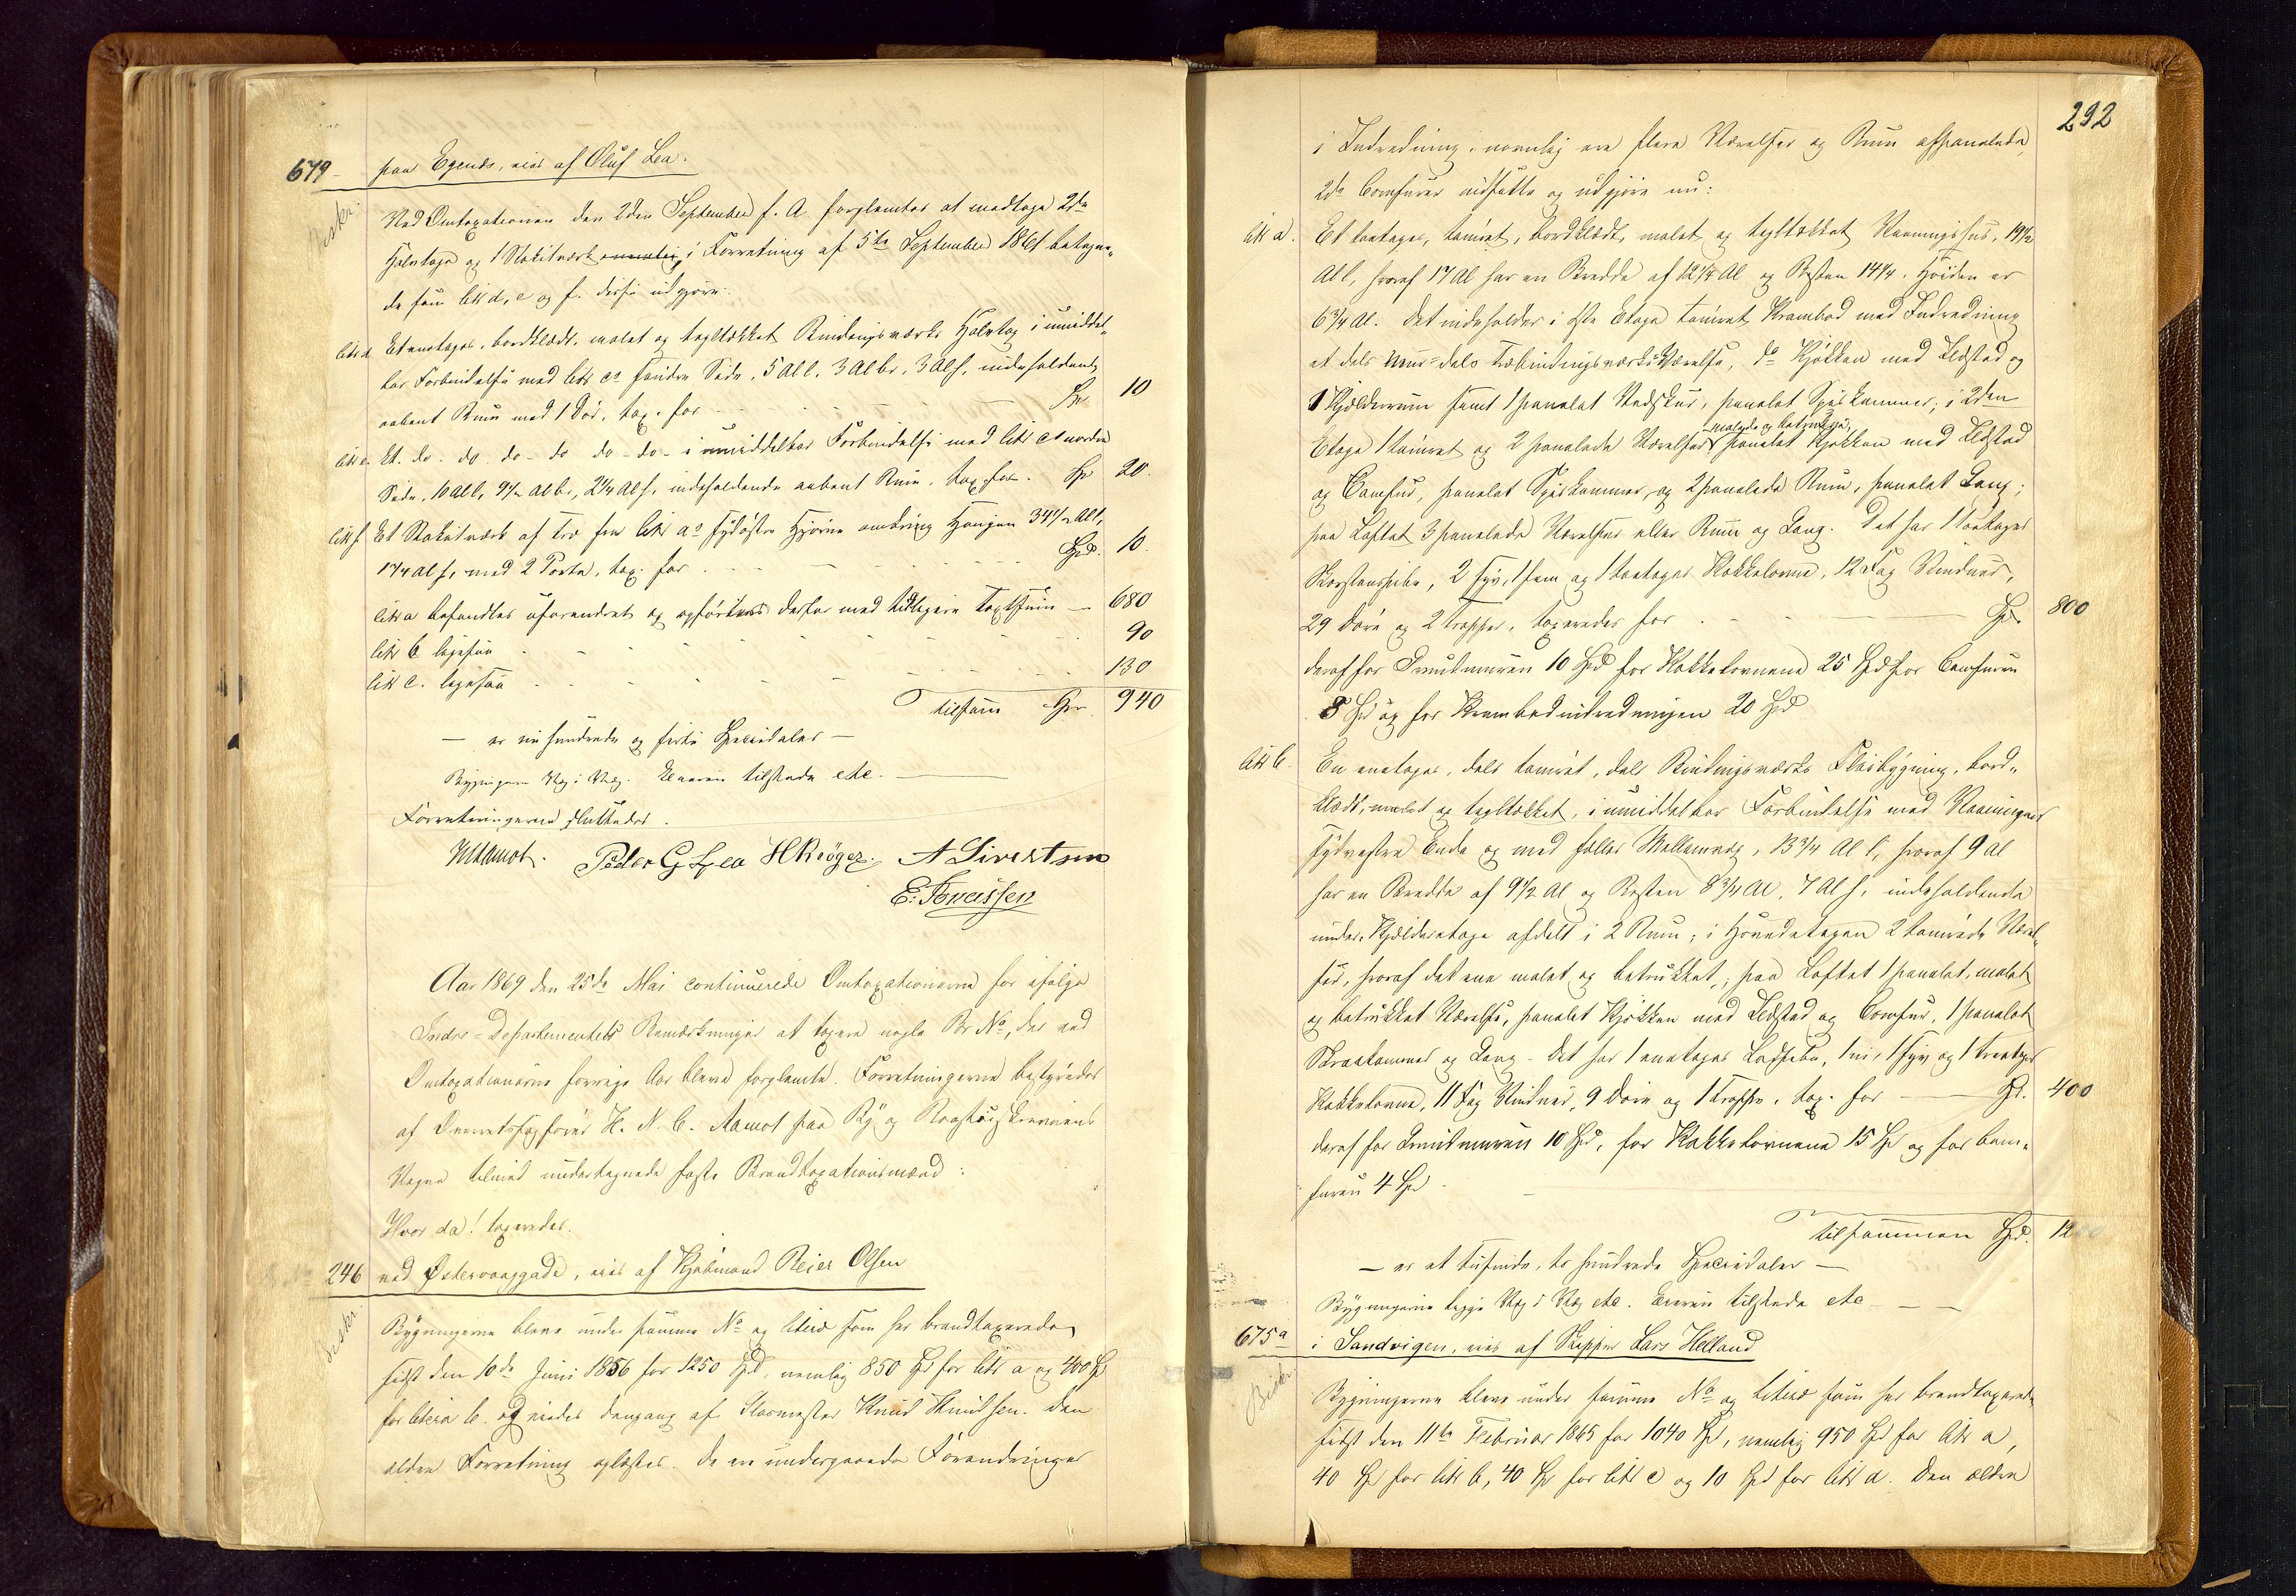 679 paa Egenæs, eies af Oluf Lea.
Beskr.
Ved Omtaxationen den 2den September f. A. forglemtes at medtage 2de
Halvtage og 1 Stakitværk i Forretning af 5te September 1861 betegne„
de som litr d, e og f. disse udgjøre:
litr d. Et enetages, bordklædt, malet og tegltækket Bindingsværks Halvtag i umiddel„
bar Forbindelse med litr c's søndre Side, 5 Al l. 3 Al br. 3 Al h. indeholdende
aabent Rum med 1 Dør, tax. for Spd 10
litr e. Et. do. do do - do do - do - i umiddelbar Forbindelse med litr c's nordre
Side, 10 Al l, 9½ Al br, 2¼ Al h. indeholdende aabent Rum, tax. for. Spd 20.
litr f. Et Stakitværk af Træ fra litr a's sydøstre Hjørne omkring Haugen 34½ Al l,
1¼ Al h, med 2 Porte, tax. for Spd. 10.
litr a befandtes uforandret og opførtes derfor med tidligere Taxtsum — 680
litr b ligesaa 90
litr c. ligesaa 130
tilsam Spd 940
— er ni hundrede og firti Speciedaler —
Bygningerne Væg i Væg. Eieren tilstede etc.
Forretningerne sluttedes.
Aamot. Peder G Lea H Krøger. A Sivertsen
E. Tønnessen
Aar 1869 den 25de Mai continuerede Omtaxationerne for ifølge
Indre-Departementets Bemærkninger at taxere nogle Br No, der ved
Omtaxationerne forrige Aar bleve forglemte. Forretningerne bestyredes
af Overretssagfører H. N. C. Aamot paa By og Raadstueskriverens
Vegne tilmed undertegnede faste Brandtaxationsmænd:
Hvor da! taxeredes.
246 ved Østervaaggade, eies af Kjøbmand Reier Olsen
Beskr.
Bygningerne bleve under samme No og litera som her brandtaxerede
sidst den 10de Juni 1856 for 1250 Spd, nemlig 850 Spd for litr a og 400 Spd
for litera b. og eiedes dengang af Knud Knudsen. Den
ældre Forretning oplæstes. De ere undergaaede Forandringer
292
i Indredning, navnlig ere flere Værelser og Rum afpanelede
2de Comfurer indsatte og udgjøre nu:
litr a. Et toetages, tømret, bordklædt, malet og tegltækket Vaaningshus, 19½
Al l, hvoraf 17 Al har en Bredde af 12¼ Al og Resten 14¼. Høiden er
6¾ Al. Det indeholder i 1ste Etage tømret Krambod med Indredning
et dels muur- dels træbindingsværks-Værelse, do Kjøkken med Ildsted og
1 Kjælderrum samt 1 panelet Vedskur, panelet Spiskammer; i 2den
malede og betrukne,
Etage 1 tømret og 2 panelede Værelser panelet Kjøkken med Ildsted
og Comfur, panelet Spiskammer, og 2 panelede Rum, panelet Gang;
paa Loftet 3 panelede Værelser eller Rum og Gang. Det har 1 toetages
Skorstenspibe, 2 fyr, 1 fem og 1 toetages Kakkelovne, 12 Fag Vinduer,
29 Døre og 2 Trapper, taxeredes for Spd. 800
deraf for Grundmuren 10 Spd for Kakkelovnene 25 Spd for Comfuren
8 Spd og for Krambodindredningen 20 Spd
litr b. En enetages, dels tømret, dels Bindingsværks Fløibygning, bord„
klædt, malet og tegltækket, i umiddelbar Forbindelse med Vaaningens
sydvestre Ende og med fælles Mellemvæg, 13¾ Al l, hvoraf 9 Al
har en Bredde af 9½ Al og Resten 8¾ Al, 7 Al h, indeholdende
under, Kjælderetage afdelt i 2 Rum; i Hovedetagen 2 tømrede Værel„
ser, hvoraf det ene malet og betrukket, paa Loftet 1 panelet, malet
og betrukket Værelse, panelet Kjøkken med Ildsted og Comfur, 1 panelet
Skraakammer og Gang. Det har 1 enetages Ladpibe, 1 ni, 1 fyr og 1 treetages
Kakkelovne, 11 Fag Vinduer, 9 Døre og 1 Trappe, tax. for Spd. 400
deraf for Grundmuren 10 Spd, for Kakkelovnene 15 Spd og for Com„
furen 4 Spd.
tilsammen Spd. 1200
— er et tusinde, to hundrede Speciedaler —
Bygningerne ligge Væg i Væg etc. Eieren tilstede etc
675a i Sandvigen, eies af Skipper Lars Helland
Beskr
Bygningerne bleve under samme No og litera som her brandtaxerede
sidst den 11te Februar 1865 for 1040 Spd, nemlig 950 Spd for litr a,
40 Spd for litr b, 40 Spd for litr c og 10 Spd for litr d. Den ældre